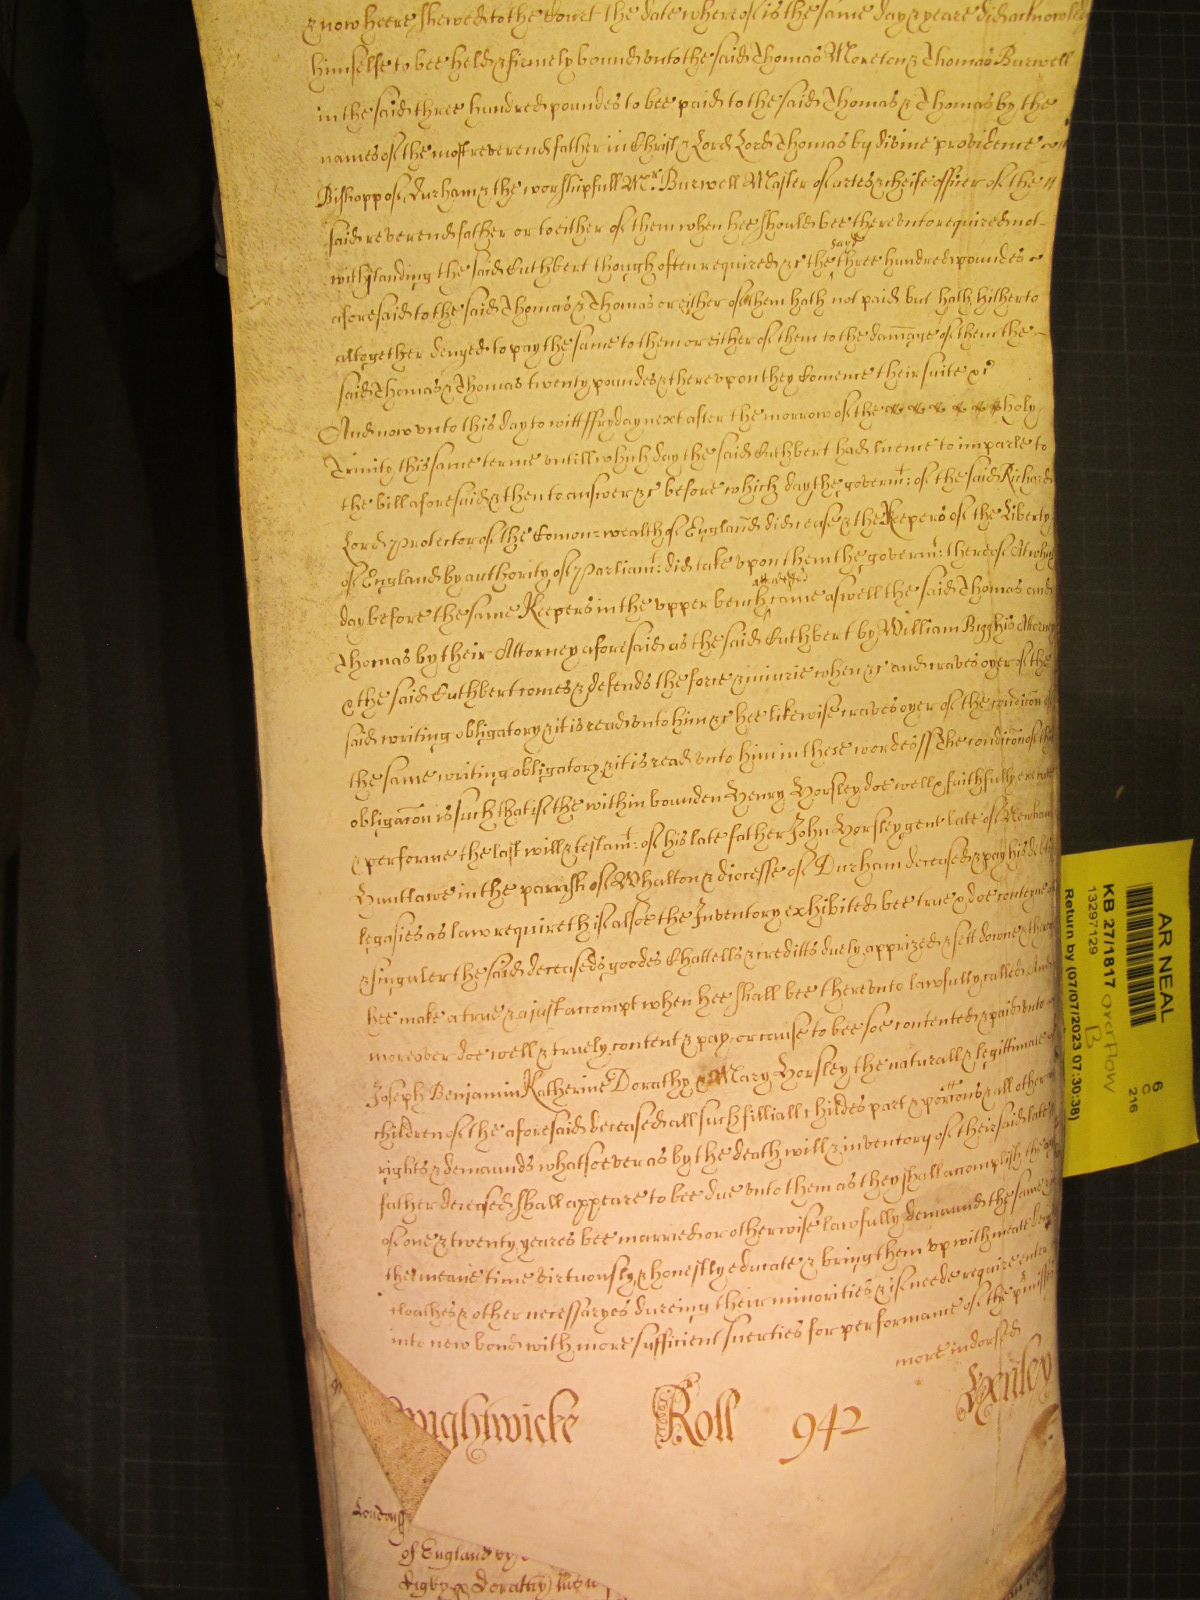 & now heere shewed to the Court the date whereof is the same day & yeare did acknowledge
himselfe to bee held & firmely bound unto the said Thomas Moreton & Thomas Burwell
in the said three hundred poundes to bee paid to the said Thomas & Thomas by the
names of the most reverend father in Christ & Lord Lord Thomas by divine providence
Bishopp of Durham & the worshipfull Mr. Burwell Master of artes & cheife officer of the
said reverend father or to either of them when hee should bee thereunto required not
withstanding the said Cuthbert though often required &c the sayd three hundred poundes
aforesaid to the said Thomas & Thomas or either of them hath not paid but hath hitherto
altogether denyed to pay the same to them or either of them to the damage of them the
said Thomas & Thomas twenty poundes & thereupon they Comence their suite &c
And now unto this day to witt ffryday next after the morrow of the holy
Trinity this same terme untill which day the said Cuthbert had licence to imparle to
the bill aforesaid & then to answer &c before which day the governt: of the said Richard
Lord Protector of the Comon=wealth of England did cease & the Keepers of the Liberty
of England by authority of Parliamt: did take upon them the governt: thereof At which
day before the same Keepers in the upper bench came aswell the said Thomas and
Thomas by their Attorney aforesaid as the said Cuthbert by William Bigg his Attorney
& the said Cuthbert comes & defends the force & iniurie when &c and craves oyer of the
said writing obligatory & it is read unto him &c hee likewise craves oyer of the condicon of
the same writing obligatory & it is read unto him in these wordes ff The condicon of this
obligacon is such that if the within bounden Henry Horsley doe well & faithfully execute
& performe the last will & testamt: of his late father John Horsley gent late of Newham
in the parrish of Whalton & diocesse of Durham deceased & pay his debts
legasies as law require th if alsoe the Inventory exhibited bee true & doe conteyne all
& singuler the said deceaseds goodes Chattells & creditts duely apprized & sett downe & that
hee make a true & a just accompt when hee shall bee thereunto lawfully called And
moreover doe well & truely content & pay or cause to bee soe contented & paid unto
Joseph Benjamin Katherine Dorathy & Mary Horsley the naturall & legittimate
children of the aforesaid deceased all such filliall childes part & portions & all other
rights & demaunds whatsoever as by the death will & inventory of their said late
father deceased shall appeare to bee due unto them as they shall accomplish the age
of one & twenty yeares bee married or otherwise lawfully demaund the same &
the meane time virtuously & honestly educate & bring them up with meate
cloathes & other necessaryes dureing their minorities & if neede require enter
into new bond with more sufficient suerties for performance of the
more indorsed
ightwicke Roll 942
of England by
Rigby & Dorathy
AR NEAL
6
C
216
KB 27/1817 overflow
B
13297129
Return by (07/07/2023 07:30:38)